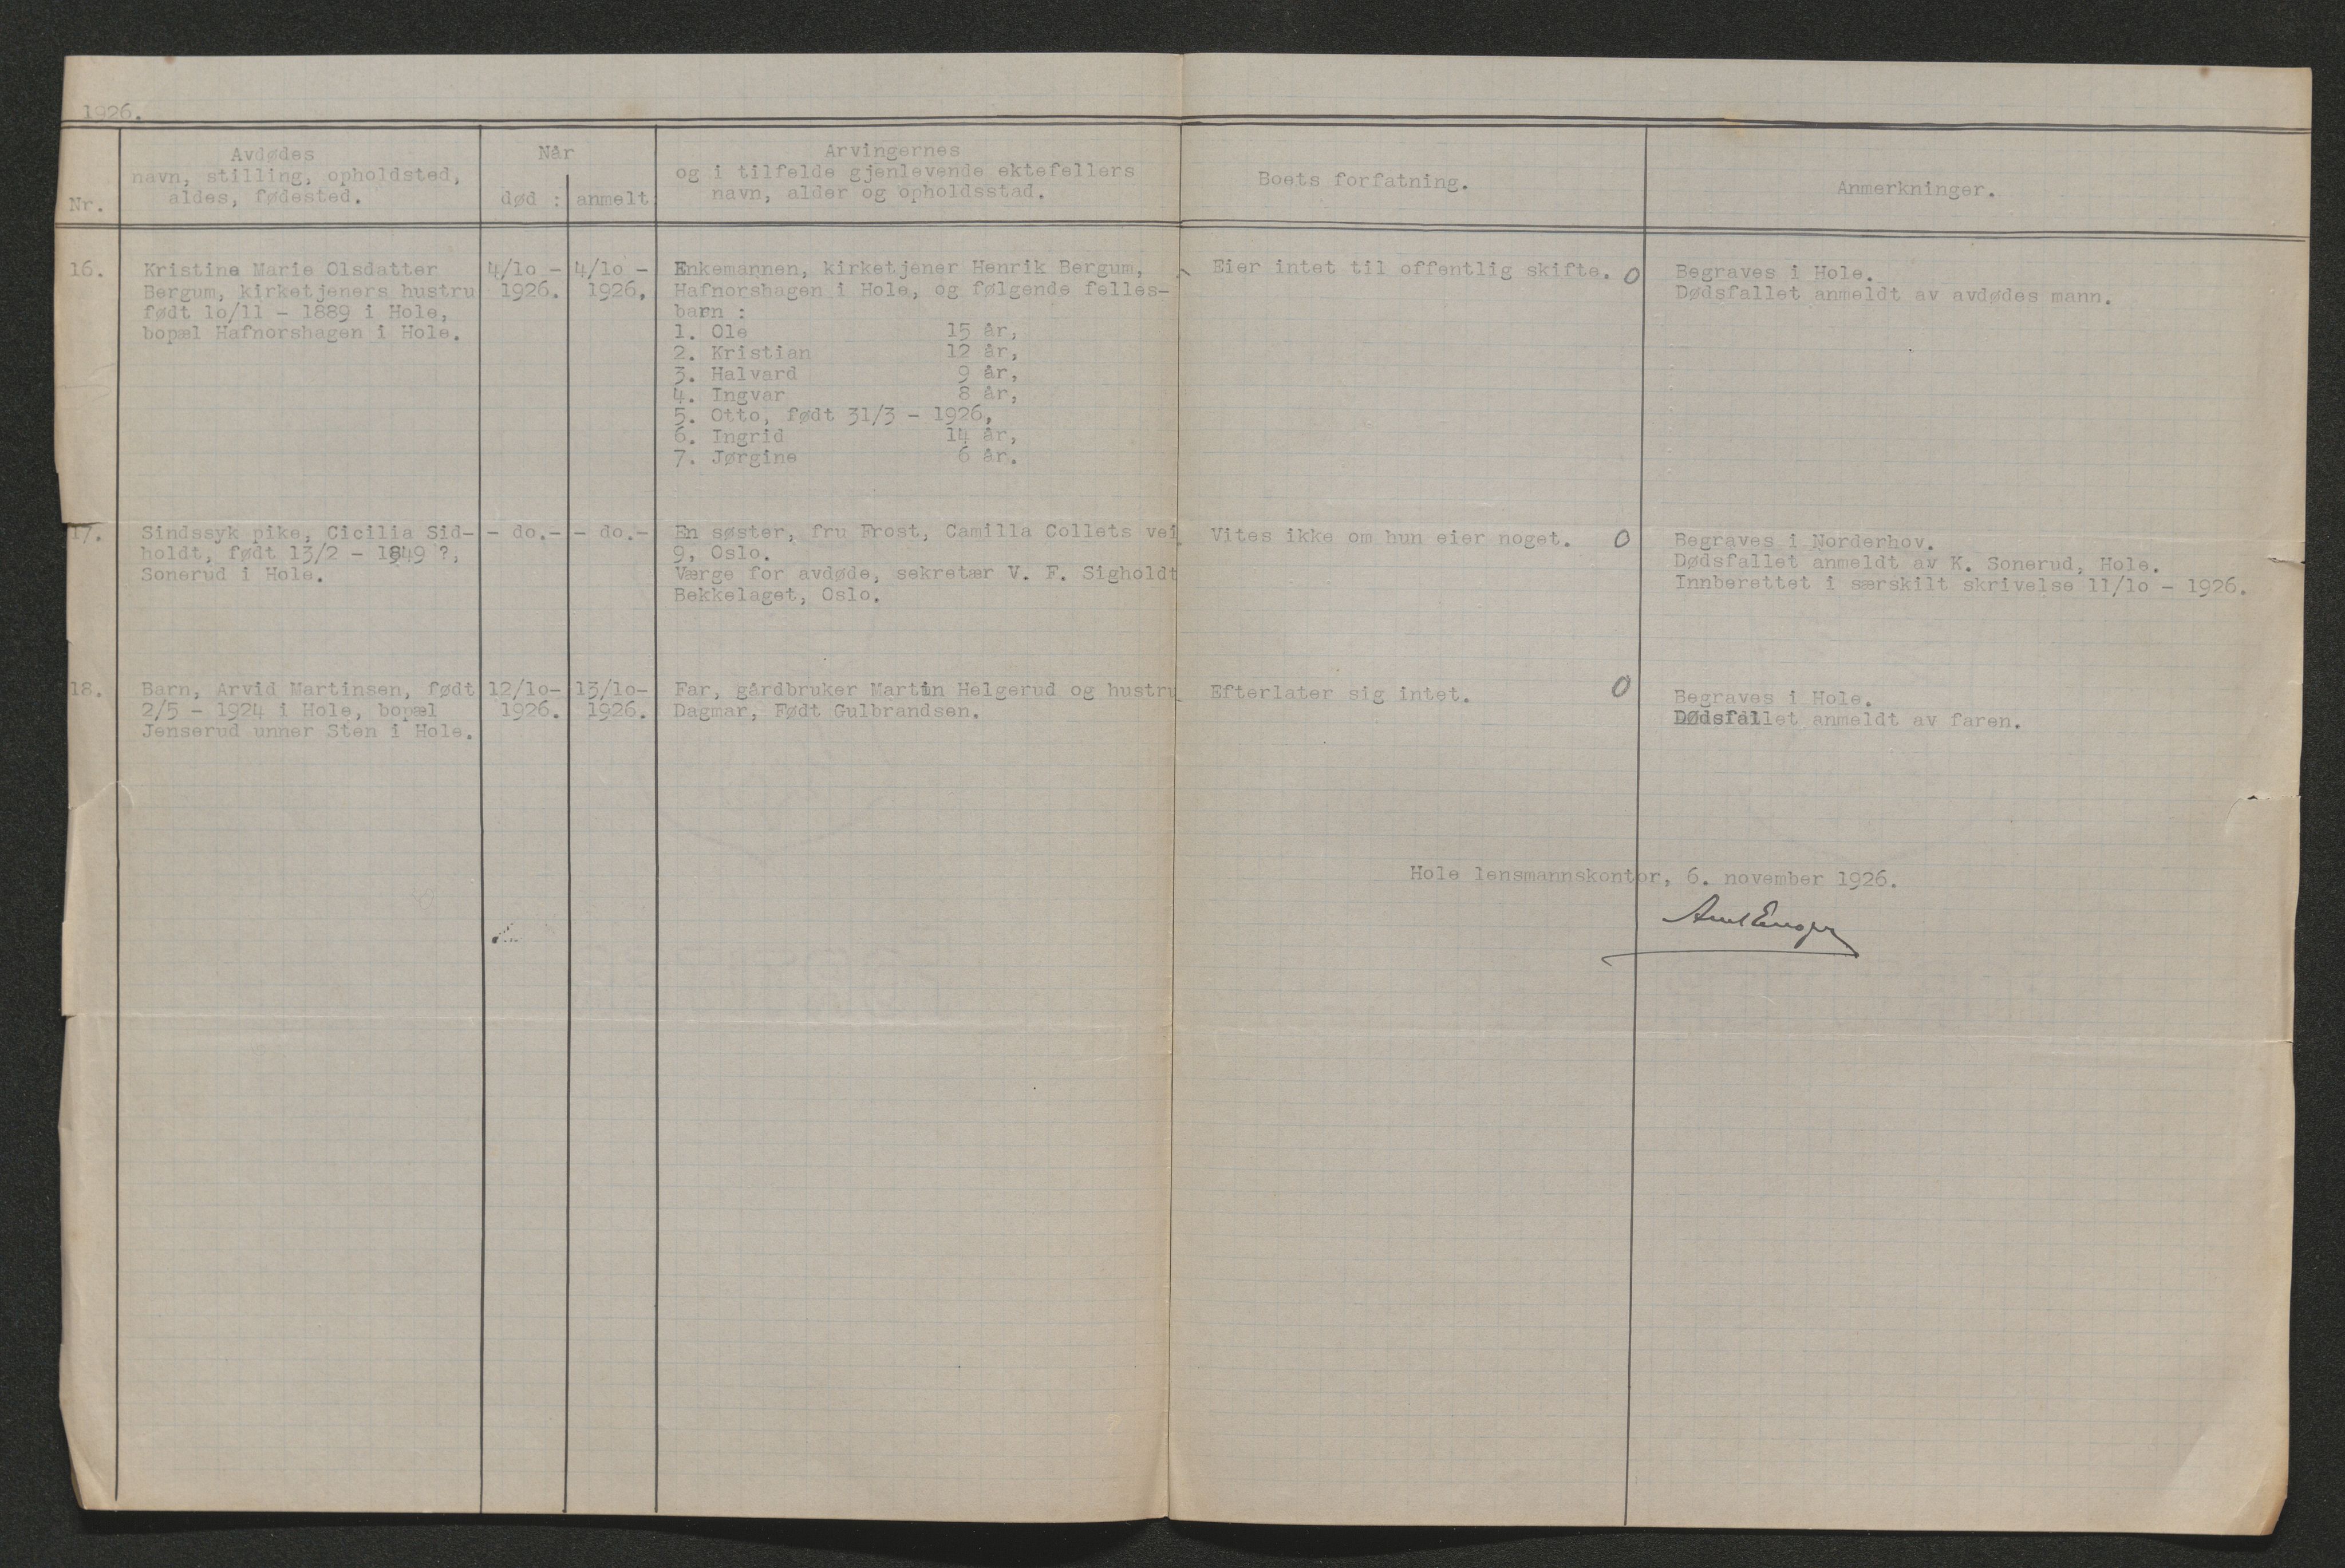 1926.
Nr.
Avdødes
navn, stilling, opholdsted,
aldes, fødested.
Når
død : anmelt
Arvingernes
og i tilfelde gjenlevende ektefellers
navn, alder og opholdsstad.
Boets forfatning.
Anmerkninger.
16.
Kristine Marie Olsdatter
Bergum, kirketjeners hustru
født 1o/11 - 1889 i Hole,
bopæl Hafnorshagen i Hole.
4/1o -
1926.
4/1o -
1926,
Enkemannen, kirketjener Henrik Bergum,
Hafnorshagen i Hole, og følgende felles-
barn :
1. Ole 15 år,
2. Kristian 12 år,
3. Halvard 9 år,
4. Ingvar 8 år,
5. Otto, født 31/3 - 1926,
6. Ingrid 14 år,
7. Jørgine 6 år.
Eier intet til offentlig skifte. 0
Begraves i Hole.
Dødsfallet anmeldt av avdødes mann.
17.
Sindssyk pike, Cicilia Sid-
holdt, født 13/2 - 1849 ?,
Sonerud i Hole.
- do.-
- do.-
En søster, fru Frost, Camilla Collets vei
9, Oslo.
Værge for avdøde, sekretær V. F. Sigholdt
Bekkelaget, Oslo.
Vites ikke om hun eier noget. 0
Begraves i Norderhov.
Dødsfallet anmeldt av K. Sonerud, Hole.
Innberettet i særskilt skrivelse 11/1o - 1926.
18.
Barn, Arvid Martinsen, født
2/5 - 1924 i Hole, bopæl
Jenserud unner Sten i Hole.
12/1o-
1926.
13/1o-
1926.
Far, gårdbruker Martin Helgerud og hustru
Dagmar, Født Gulbrandsen.
Efterlater sig intet. 0
Begraves i Hole.
Dødsfallet anmeldt av faren.
Hole lensmannskontor, 6. november 1926.